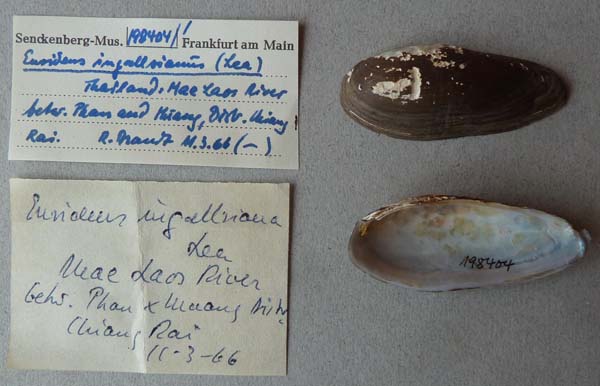 Senckenberg-Mus. 198404/1 Frankfurt am Main
Ensidens ingallsianus (Lea)
Thailand: Mae Laos River
betw. Phan and Muang, Distr. Chiang
Rai. R. Brandt 11.3.66 (–)
Ensidens ingallsiana
Lea
Mae Laos River
betw. Phan x Muang Distr.
Chiang Rai
11-3-66
198404